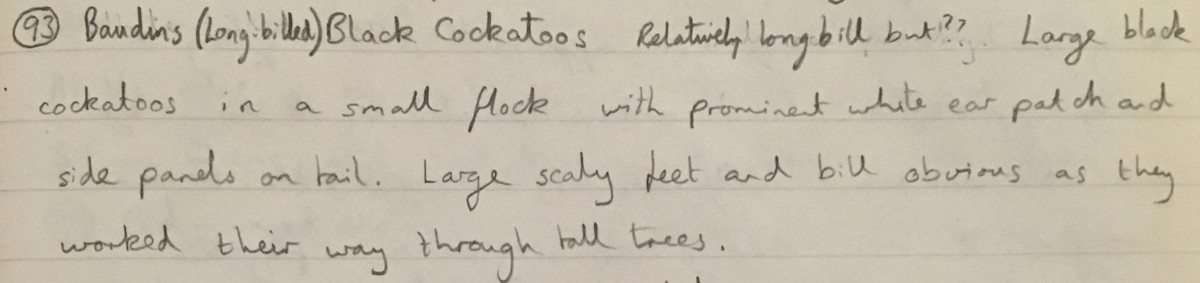 (93) Baudins (Long-billed) Black Cockatoos Relatively long bill but?? Large black
cockatoos in a small flock with prominent white ear patch and
side panels on tail. Large scaly feet and bill obvious as they
worked their way through tall trees.